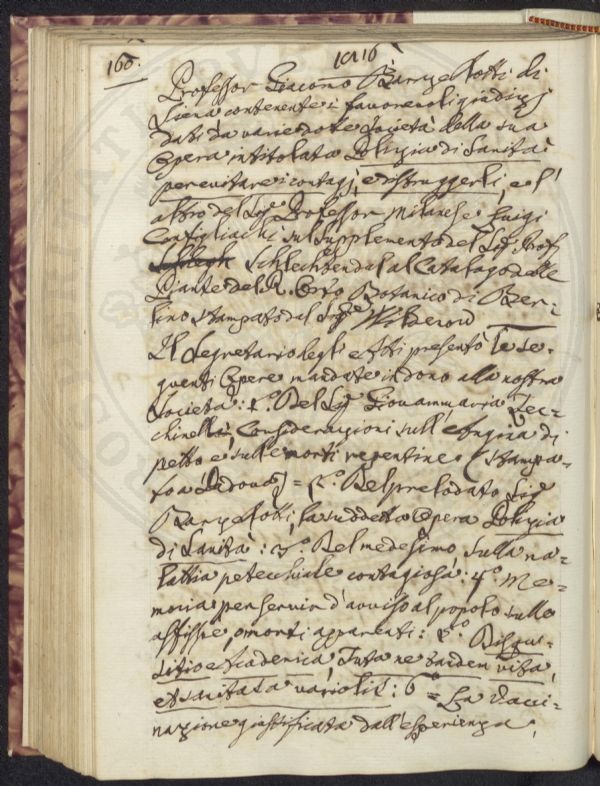 160.
1816
Professor Giacomo Barzellotti di
Siena contenente i favorevoli giudizj
dati da varie dotte Società della sua
Opera intitolata Polizia di Sanità
per evitare i contagj, e distruggerli, e l'
altro del Sig.r Professor Milanese Luigi
Configliachi sul supplemento del Sig. Prof.
Schlechtendal al Catalogo delle
Piante del R. Orto Botanico di Ber-
lino stampato dal Sig.re
Il Segretario legli e Atti presentò le se-
guenti Opere mandate in dono alla nostra
Società: 1.° Del Sig. Giovanmaria Zec-
chinelli Considerazioni sull'Angina di
petto e sulle morti repentine (stampa-
to a Padova) = 2.° Del prelodato Sig.
Barzellotti, la suddetta Opera Polizia
di Sanità: 3.° Del medesimo sulla ma-
lattia petecchiale contagiosa: 4.° Me-
moria per servir d'avviso al popolo sulle
asfissie, o morti apparenti: 5.° Disqui-
sitio Academica, Tuta ne eadem vita,
et sanitas a variolis: 6.° = La Vacci-
nazione giustificata dall'esperienza,